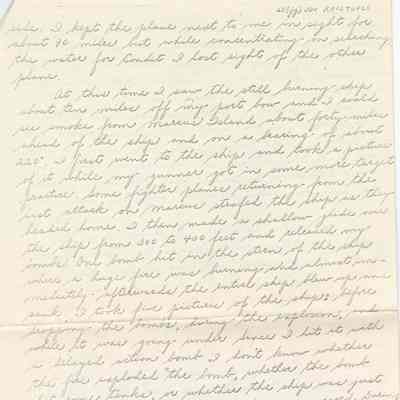 side. I kept the plane next to me in sight for
about 90 miles but while concentrating on searching
the water for Condit I lost sight of the other
plane.
At this time I saw the still burning ship
about ten miles off my port bow and I could
see smoke from Marcus Island about forty miles
ahead of the ship and on a bearing of about
220°. I first went to the ship and took a picture
of it while my gunner got in some more target
practice. Some fighter planes returning from the
last attack on Marcus strafed the ship as they
headed home. I then made a shallow glide over
the ship from 300 to 400 feet and released my
bombs. One bomb hit in the stern of the ship
where a huge fire was burning and almost im-
mediately afterwards the entire ship blew up and
sank. I took five pictures of the ship; before
dropping the bombs, during the explosion, and
while it was going under. Since I hit it with
a delayed action bomb I don't know whether
the fire exploded the bomb, whether the bomb
tanks, or whether the ship was just